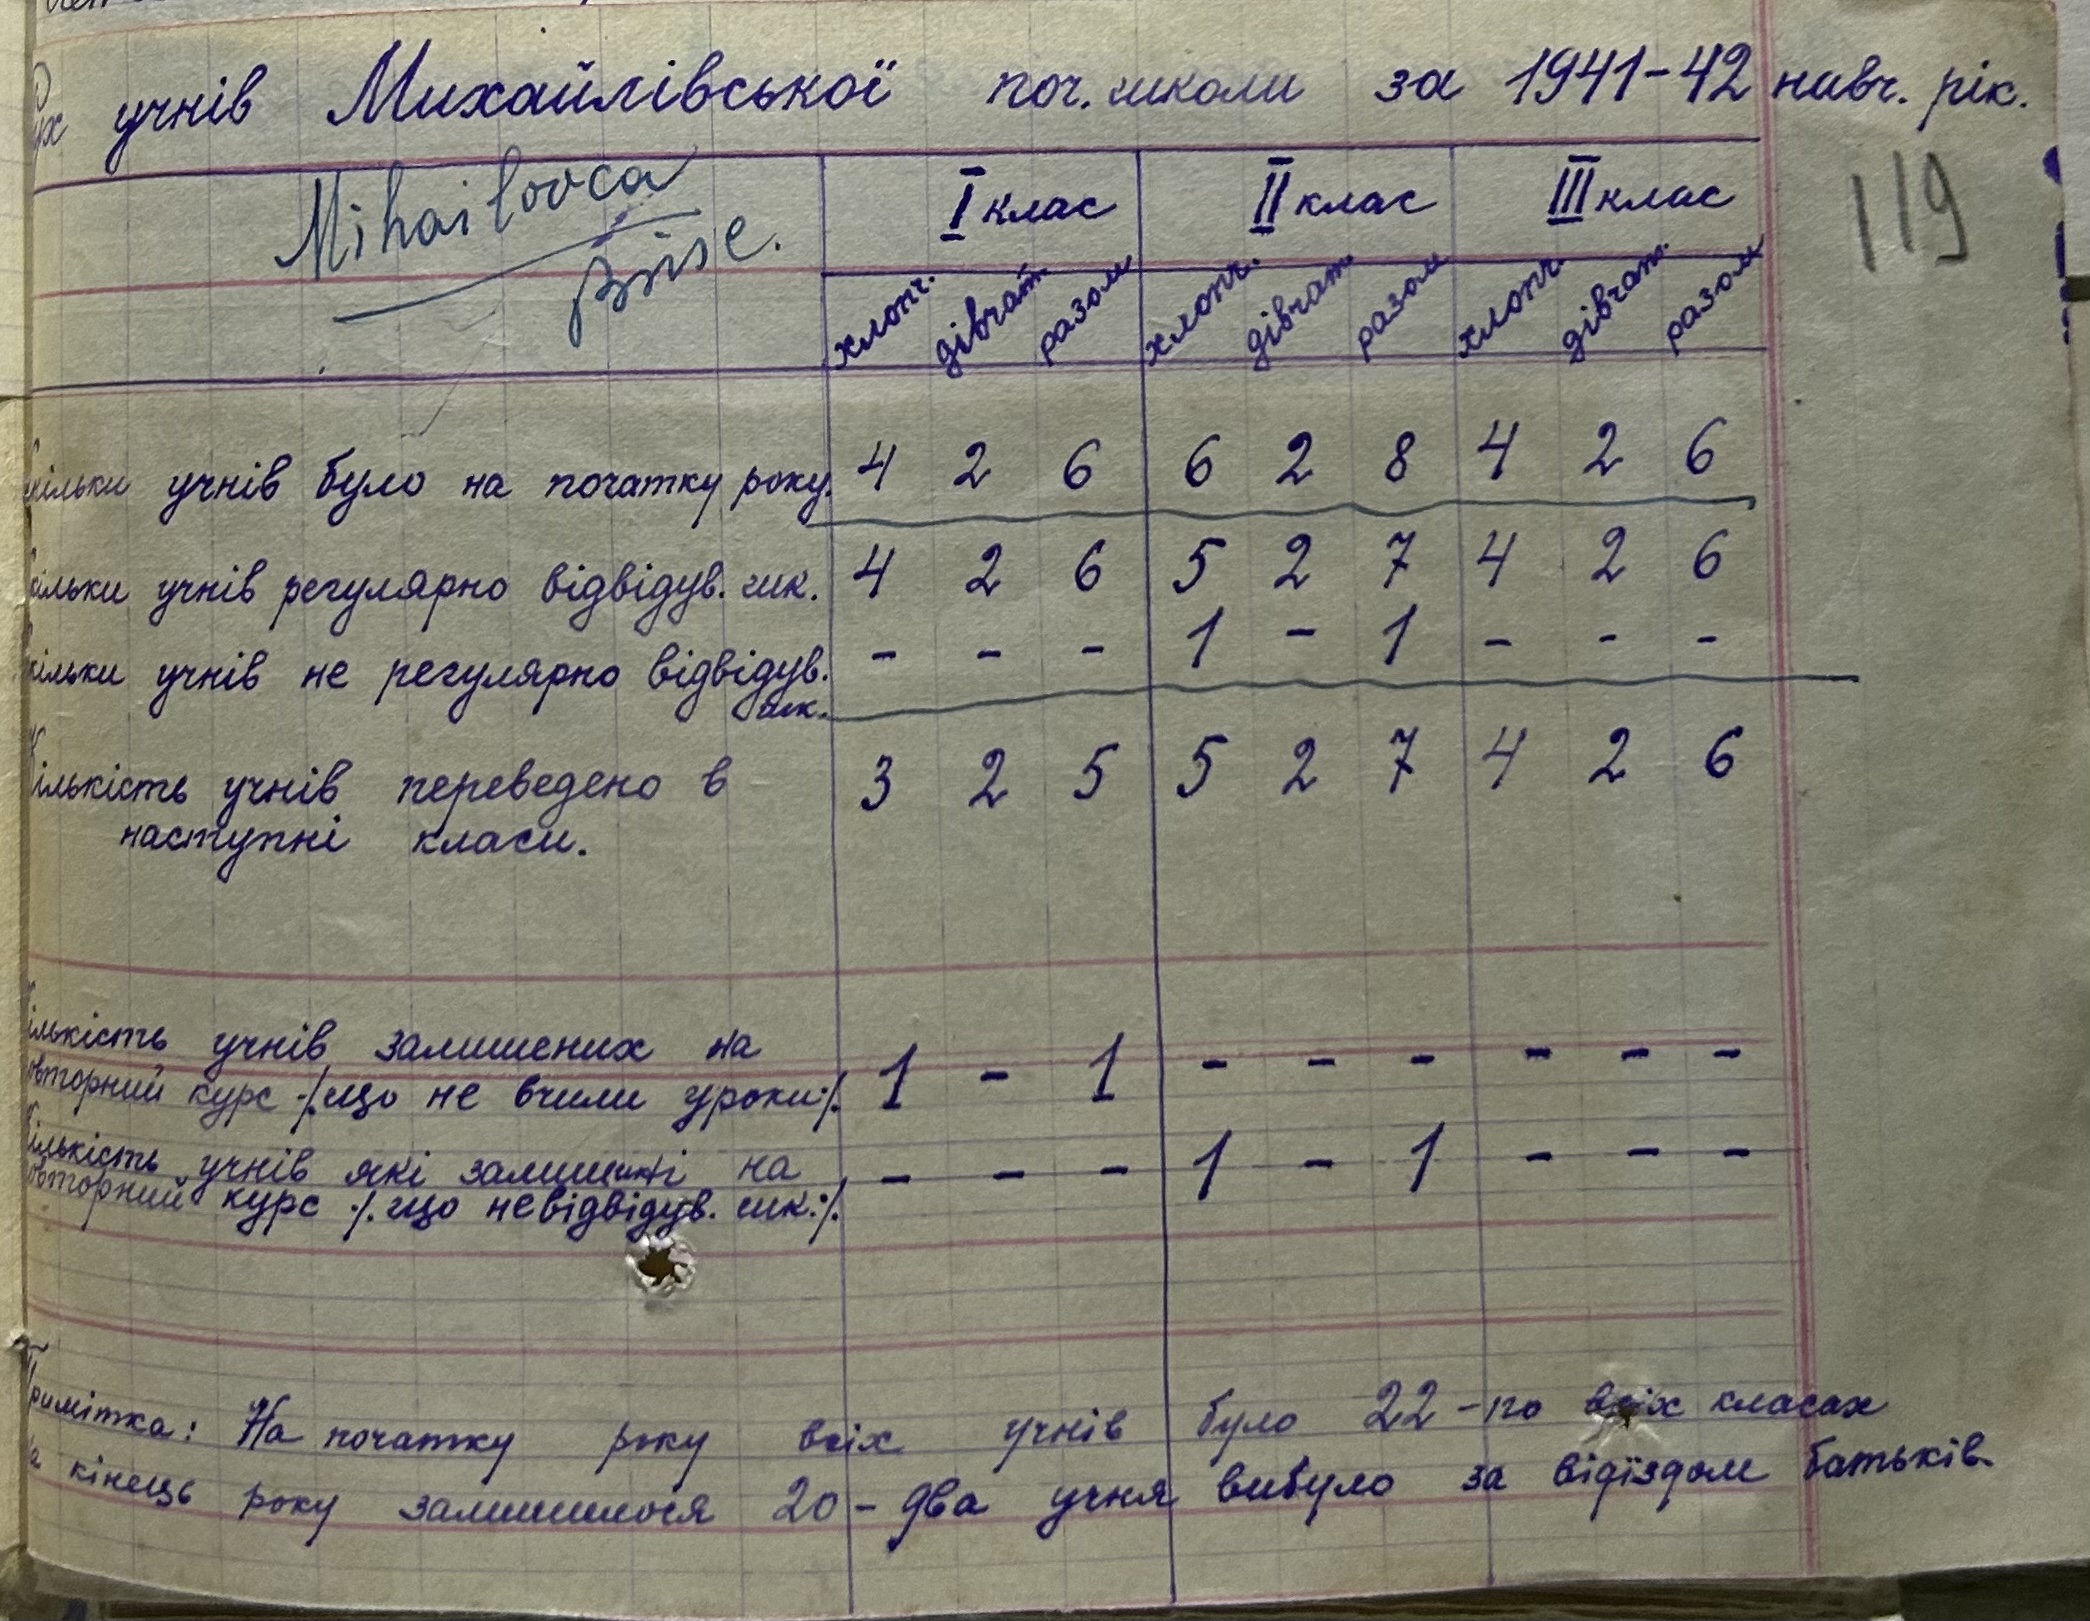 Рух учнів Михайлівської поч. школи за 1941-42 навч. рік.
119
Mihailovca
I клас II клас III клас
хлопч. дівчат. разом хлопч. дівчат. разом хлопч. дівчат. разом
Скільки учнів було на початку року. 4 2 6 6 2 8 4 2 6
Скільки учнів регулярно відвідув. шк. 4 2 6 5 2 7 4 2 6
Скільки учнів не регулярно відвідув. - - - 1 - 1 - - -
шк.
Кількість учнів переведено в 3 2 5 5 2 7 4 2 6
наступні класи.
Кількість учнів залишених на
повторний курс ./. що не вчили уроки ./. 1 - 1 - - - - - -
Кількість учнів які залишені на - - - 1 - 1 - - -
повторний курс ./. що невідвідув. шк. ./.
Примітка: На початку року всіх учнів було 22 - по всіх класах
на кінець року залишилося 20 - два учня вибуло за відїздом батьків.